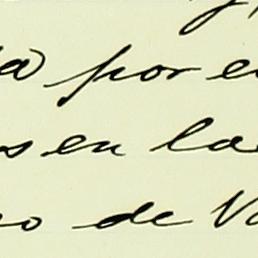 a por e
s en la
o de V